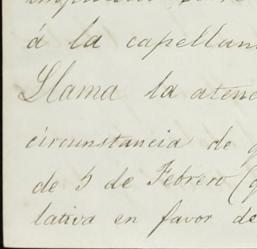 á la capellan
Llama la atenc
circunstancia de q
de 5 de Febrero (q
lativa en favor de